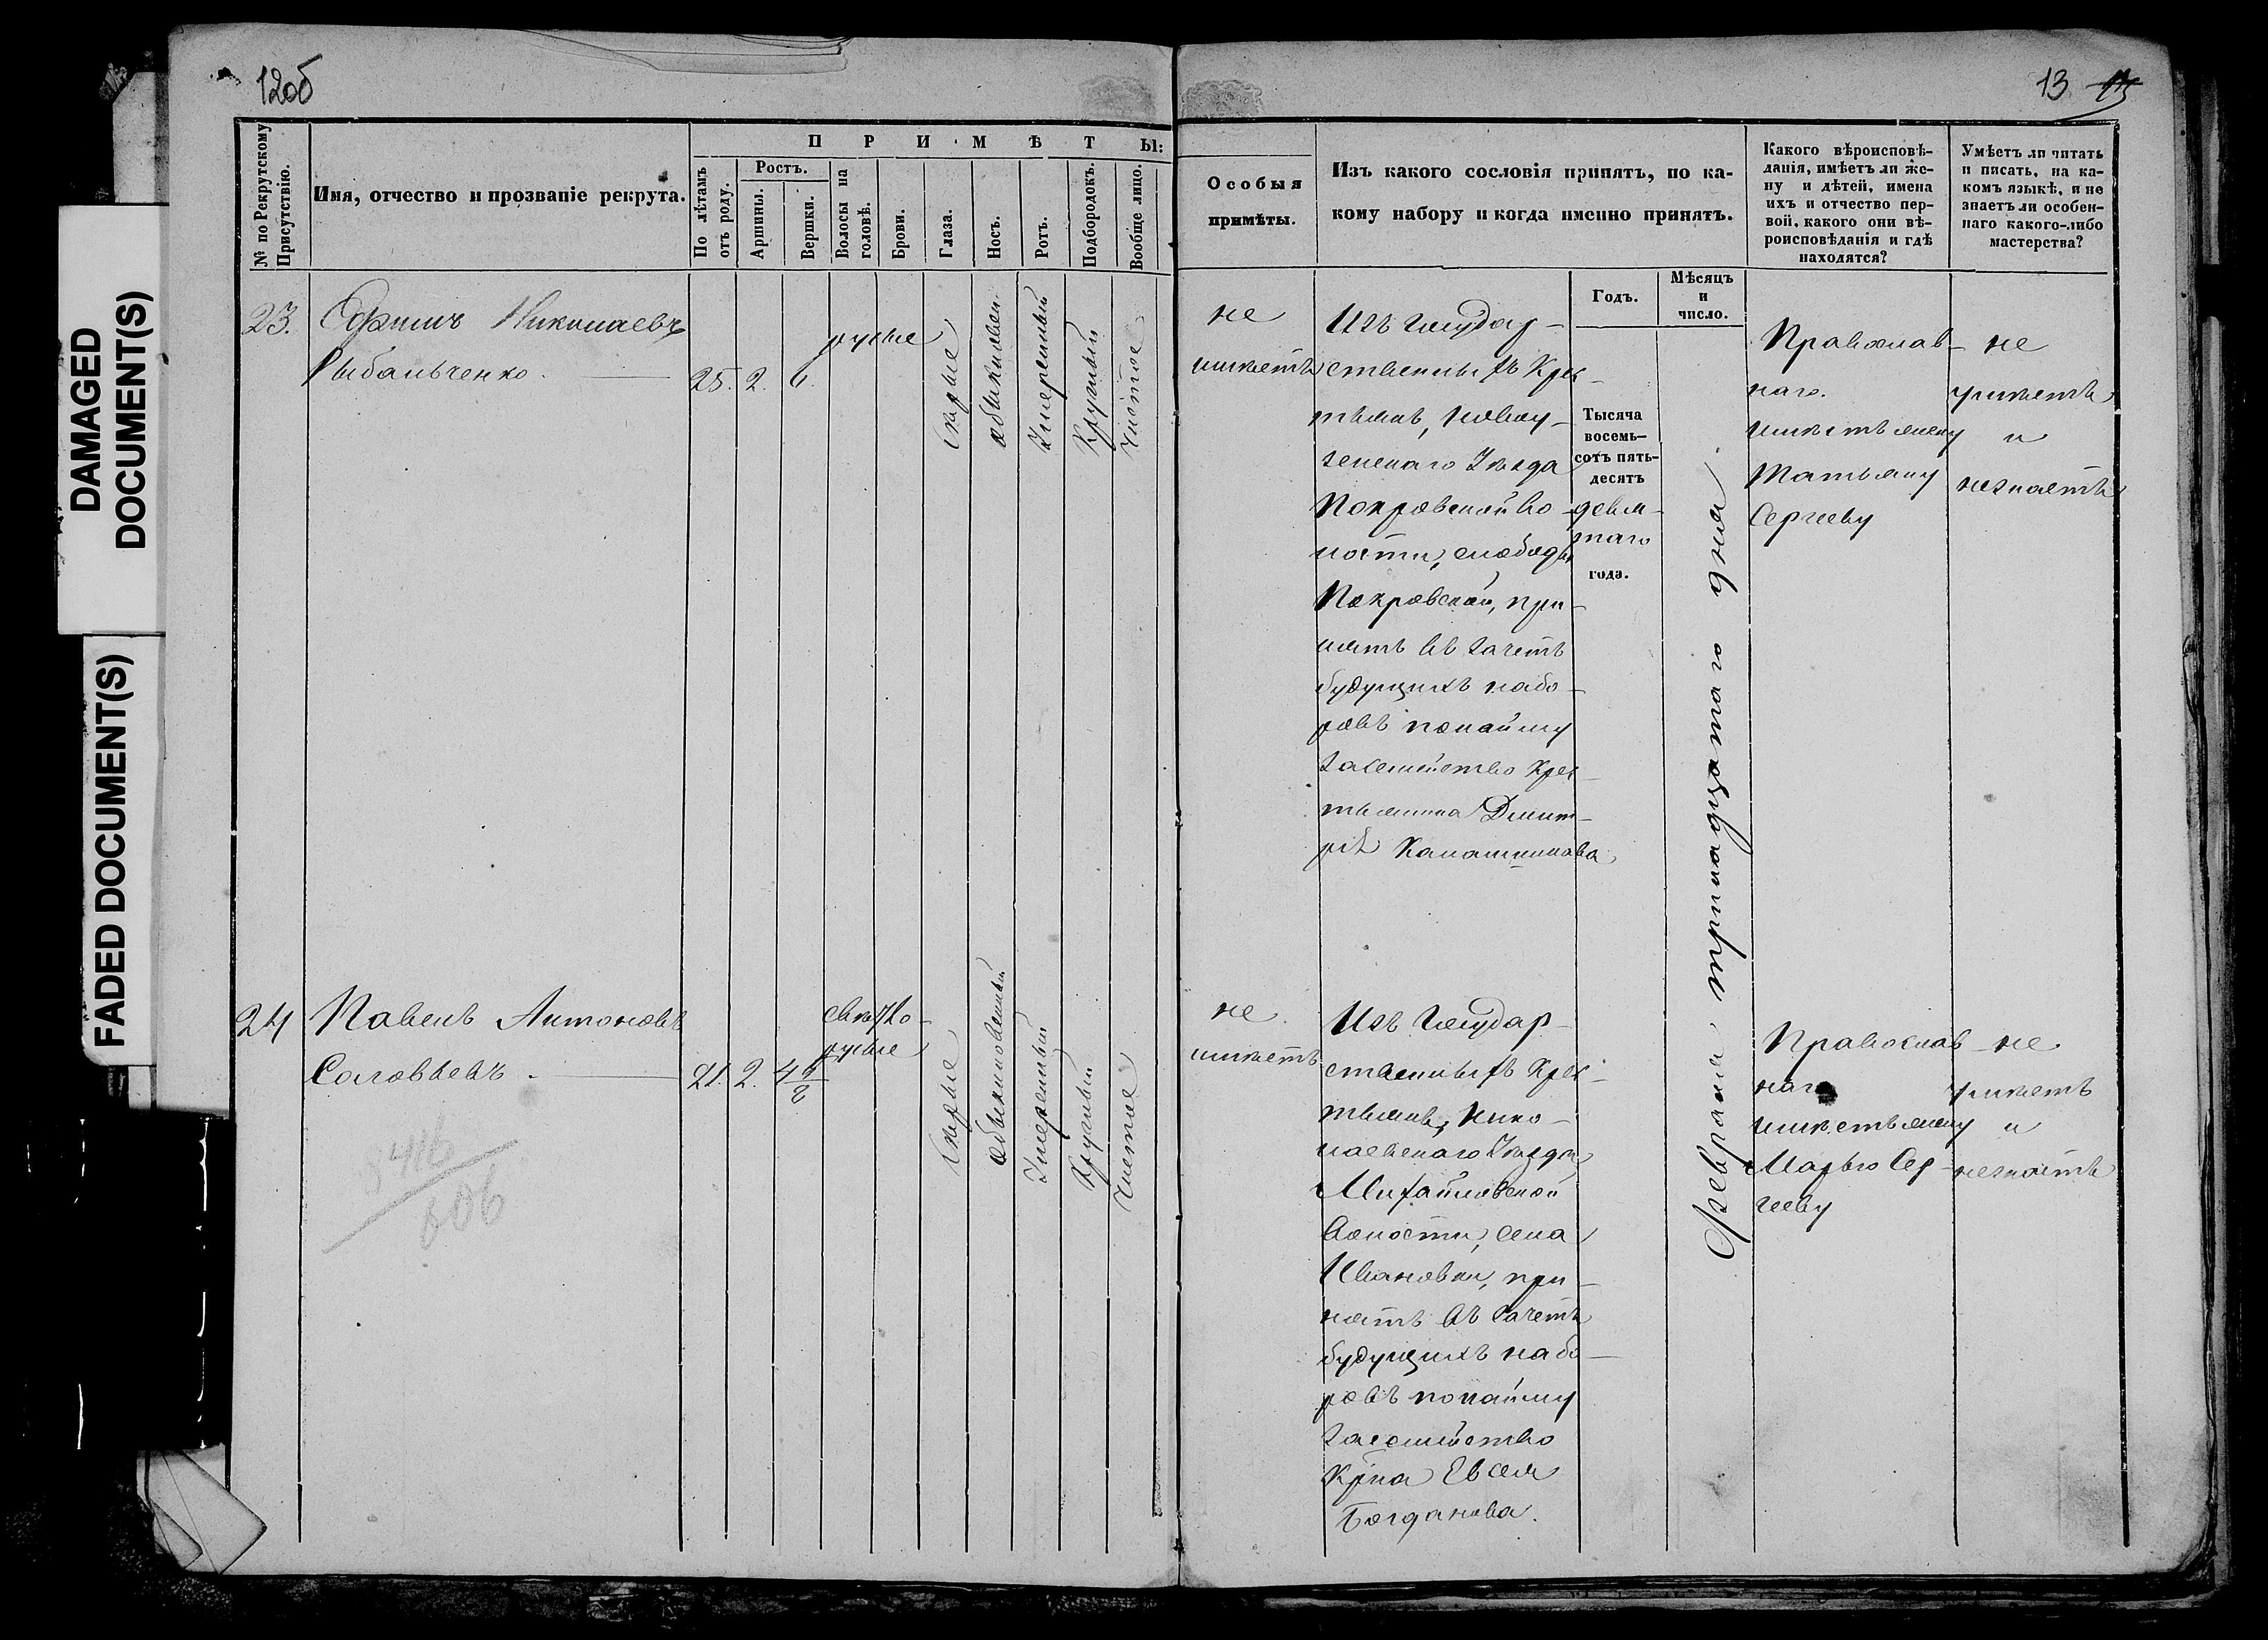 12об
13
DAMAGED
DOCUMENT(S)
FADED DOCUMENT(S)
№ по Рекрутскому
Присутствію.
Имя, отчество и прозваніе рекрута.
ПРИМѢТЫ:
По лѣтамъ
отъ роду.
Ростъ.
Аршины.
Вершки.
Волосы на
головѣ.
Брови.
Глаза.
Носъ.
Ротъ.
Подбородокъ.
Вообще лицо.
Особыя
примѣты.
Изъ какого сословія принятъ, по ка-
кому набору и когда именно принятъ.
Годъ.
Мѣсяцъ
и
число.
Какого вѣроисповѣ-
данія, имѣетъ ли же-
ну и дѣтей, имена
ихъ и отчество пер-
вой, какого они вѣ-
роисповѣданія и гдѣ
находятся?
Умѣетъ ли читать
и писать, на ка-
комъ языкѣ, и не
знаетъ ли особен-
наго какого-либо
мастерства?
23.
Ефимъ Николаевъ
Рыбальченко.
25. 2. 6.
русые
сѣрые
обыкновен.
умеренный
круглый
чистое
не
имѣетъ
Изъ Государ-
ственныхъ Крес-
тьянъ, Новоу-
зенскаго Уѣзда
Покровской во-
лости, слободы
Покровской, при-
нятъ въ зачетъ
будущихъ набо-
ровъ понайму
засемейство Крес-
тьянина Дмит-
рія Калашникова
Тысяча
восемь-
сотъ пять-
десятъ
девя-
таго
года.
Февраля тринадцатаго дня.
Православ-
наго.
имѣетъ жену
Татьяну
Сергееву
не
умѣетъ
и
незнаетъ
24
Павелъ Антоновъ
Соловьевъ.
21. 2. 4 1/2
свѣтло-
русые
сѣрые
обыкновенный
умеренный
круглый
чистое
5416
606
не
имѣетъ
Изъ Государ-
ственныхъ Крес-
тьянъ, Нико-
лаевскаго Уѣзда
Михайловской
волости, села
Ивановки, при-
нятъ въ зачетъ
будущихъ набо-
ровъ понайму
засемейство
Кр-на Евсея
Богданова.
Православ-
наго
имѣетъ жену
Марью Сер-
гееву
не
умѣетъ
и
незнаетъ